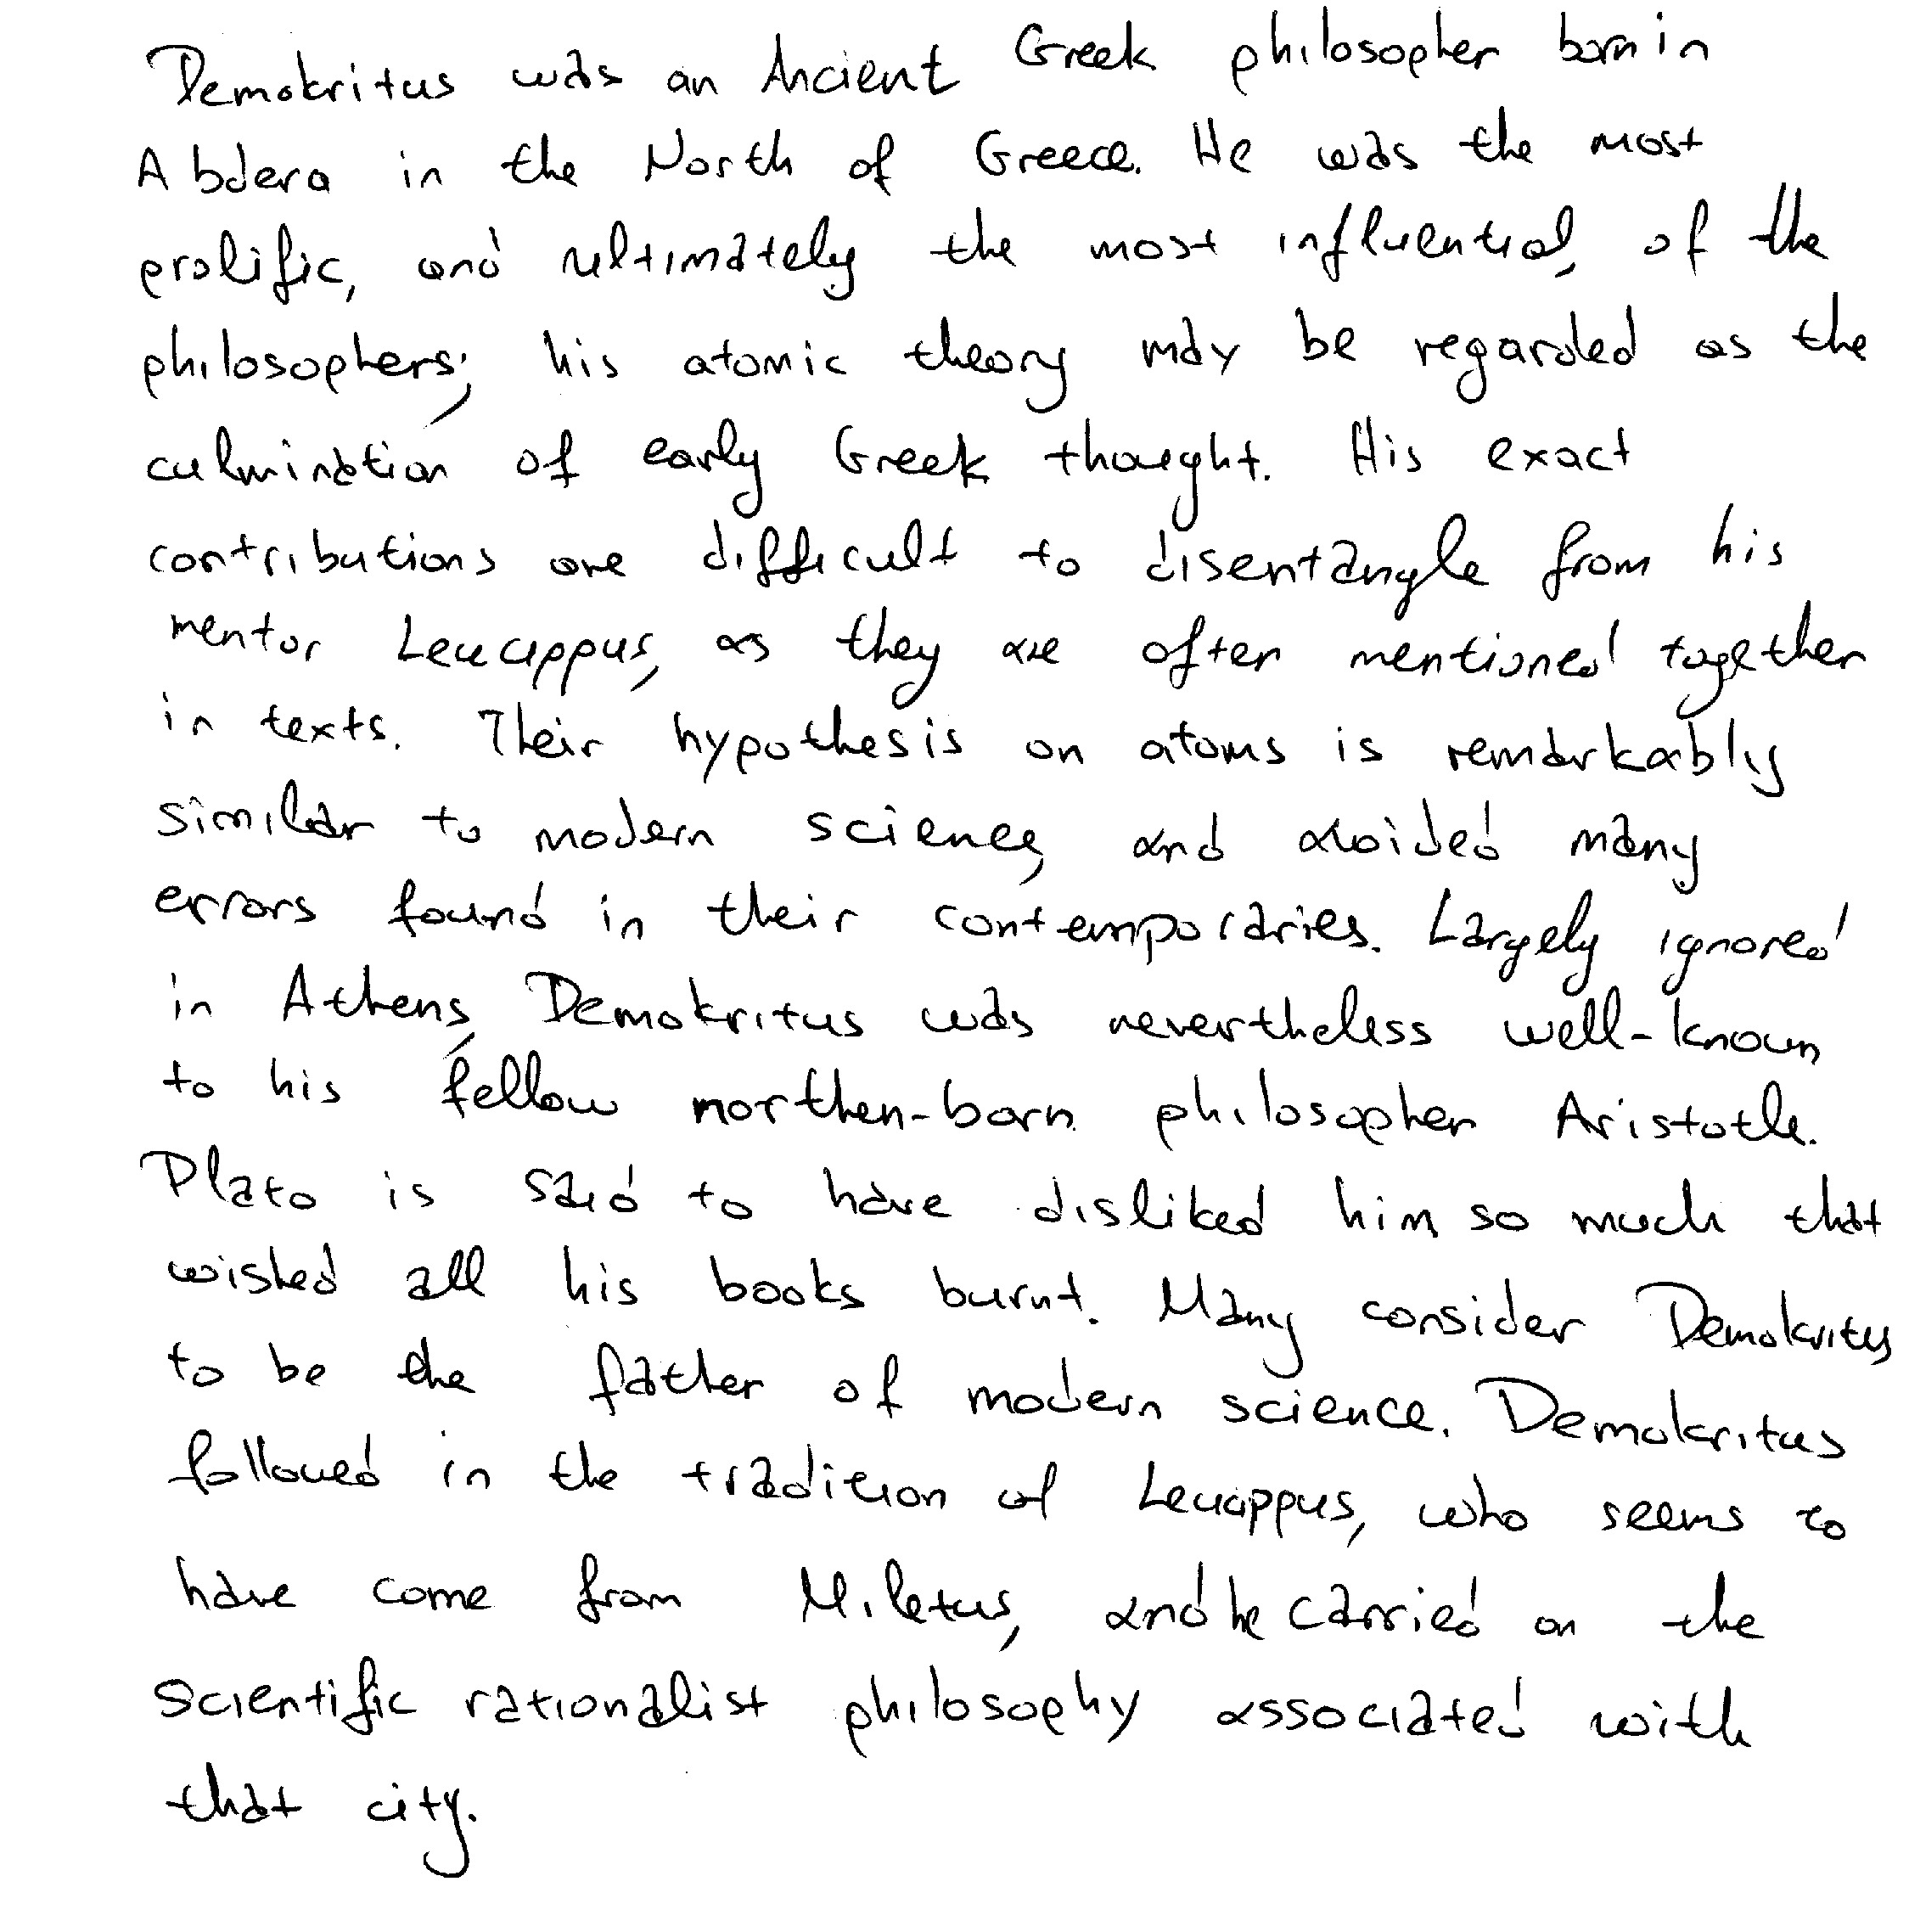 Demokritus was an Ancient Greek philosopher born in
Abdera in the North of Greece. He was the most
prolific, and ultimately the most influential, of the
philosophers; his atomic theory may be regarded as the
culmination of early Greek thought. His exact
contributions are difficult to disentangle from his
mentor Leucippus, as they are often mentioned together
in texts. Their hypothesis on atoms is remarkably
similar to modern science, and avoided many
errors found in their contemporaries. Largely ignored
in Athens, Demokritus was nevertheless well-known
to his fellow northen-born philosopher Aristotle.
Plato is said to have disliked him so much that
wished all his books burnt. Many consider Demokritus
to be the father of modern science. Demokritus
followed in the tradition of Leucippus, who seems to
have come from Miletus, and he carried on the
scientific rationalist philosophy associated with
that city.